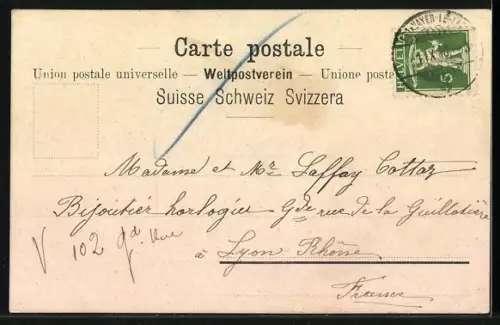 Carte postale
Union postale universelle – Weltpostverein – Unione posta
Suisse Schweiz Svizzera
HELVETIA
5
Madame et Mr. Laffay Cottaz
Bijoutier horloger Gde rue de la Guillotière
V 102 gd. rue
à Lyon Rhône
France